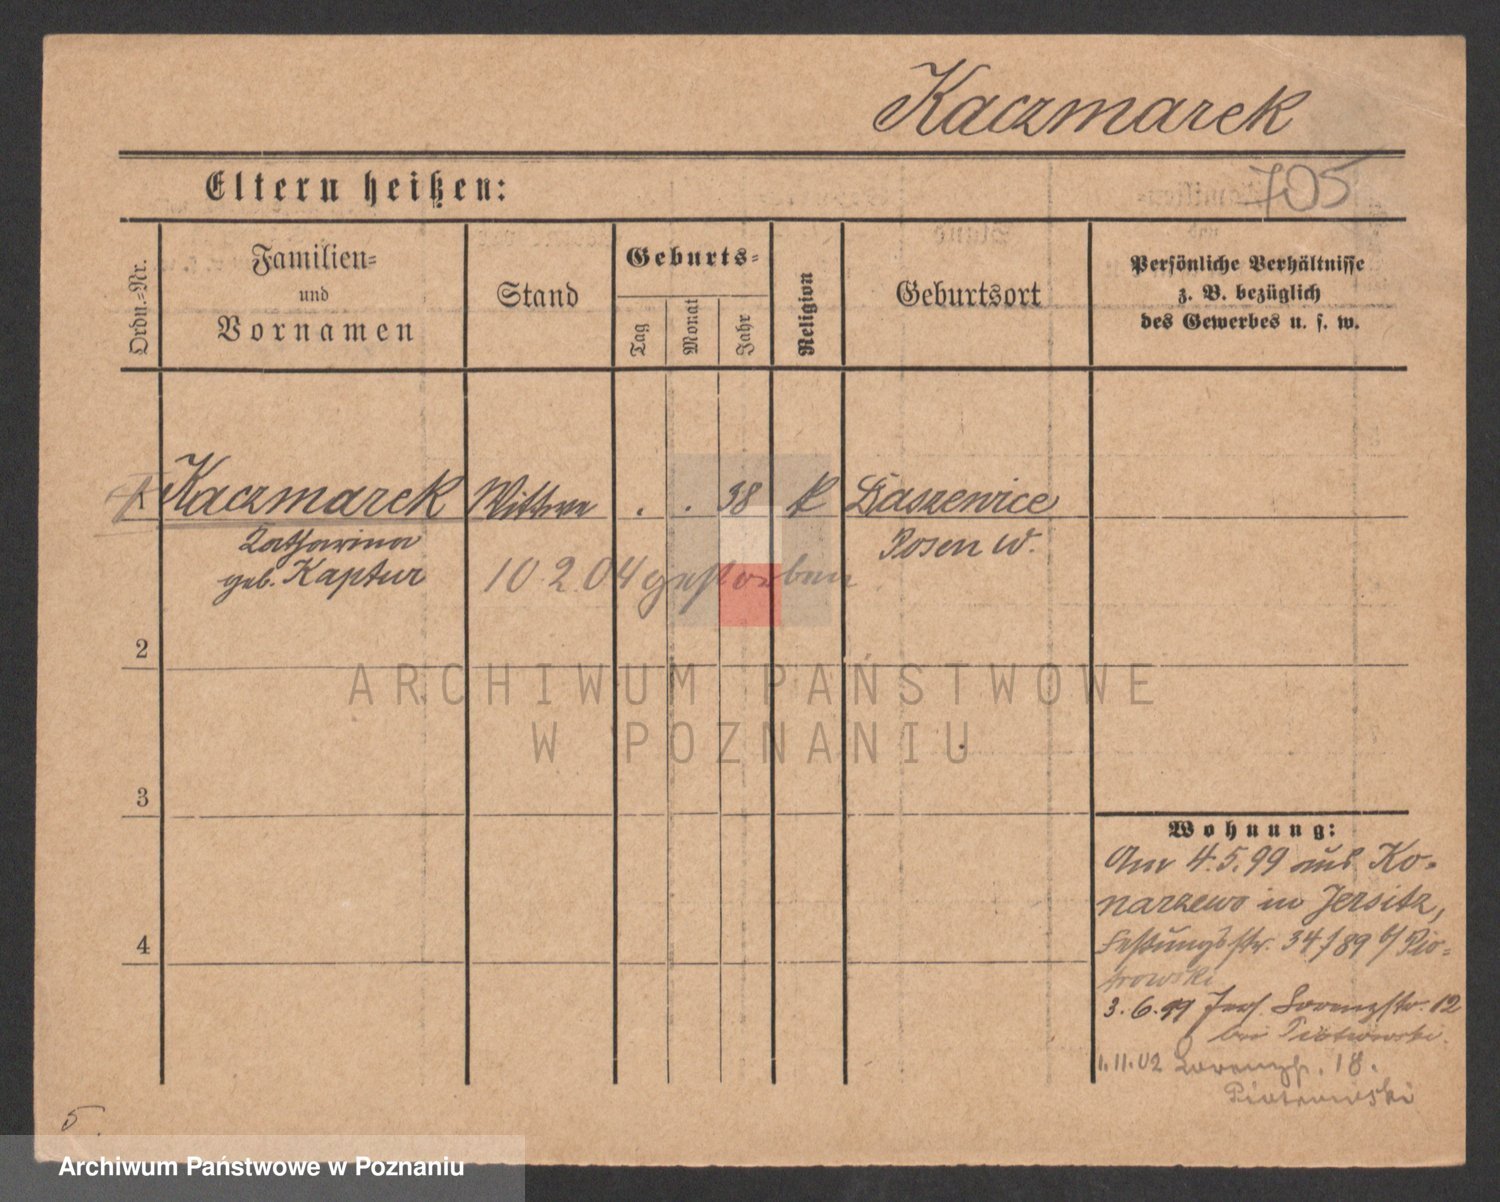 Kaczmarek
Eltern heißen:
705
Ordn.=Nr.
Familien=
und
Vornamen
Stand
Geburts=
Tag
Monat
Jahr
Religion
Geburtsort
Persönliche Verhältnisse
z. B. bezüglich
des Gewerbes u. s. w.
1 Kaczmarek Wittwe . . 38 k Daszewice
Catharina Posen W.
geb. Kaptur 10.2.04 gestorben
2
3
4
ARCHIWUM PAŃSTWOWE
W POZNANIU
Wohnung:
Am 4.5.99 aus Ko-
narzewo in Jersitz,
Festungsstr. 34/89 b/ Pio-
trowski
3.6.99 Jers. Lorenzstr. 12
bei Piotrowski.
1.11.02 Lorenzstr. 18.
Piotrowski
5
Archiwum Państwowe w Poznaniu